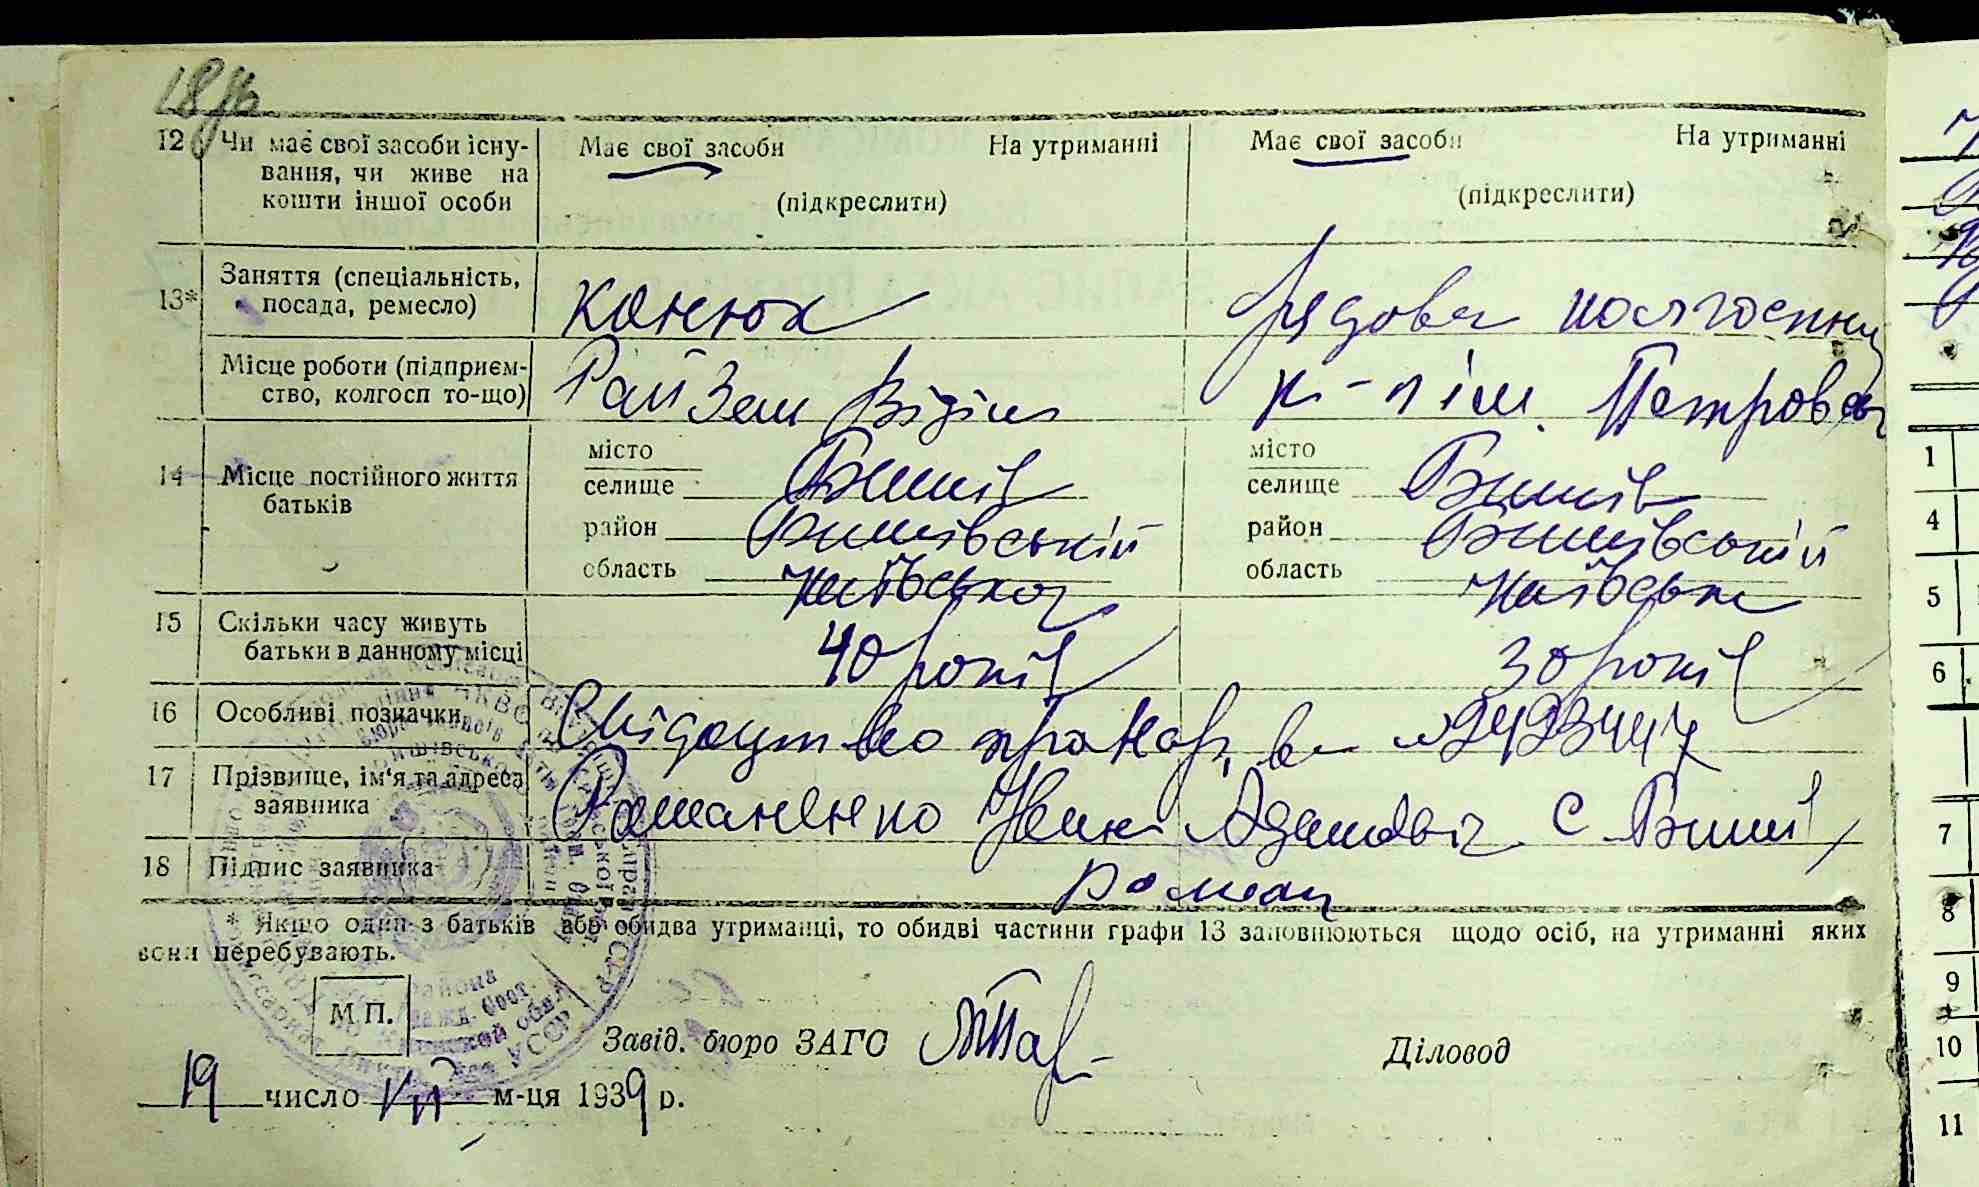 12 Чи має свої засоби існу- Має свої засоби На утриманні Має свої засоби На утриманні
вання, чи живе на
кошти іншої особи (підкреслити) (підкреслити)
13* Заняття (спеціальність,
посада, ремесло) конюх рядова колгоспни
Місце роботи (підприєм-
ство, колгосп то-що) Рай Зем Відділ к-п ім. Петровс
місто місто
14 Місце постійного життя селище Бишів селище Бишів
батьків район Бишівський район Бишівський
область Київська область Київськ
15 Скільки часу живуть
батьки в данному місці 40 років 30 років
16 Особливі позначки Свідоцтво про
17 Прізвище, ім'я та адреса
заявника Романенко Адамович с Бишів
18 Підпис заявника Роман
* Якщо один з батьків або обидва утриманці, то обидві частини графи 13 заповнюються щодо осіб, на утриманні яких
вони перебувають.
М.П.
Завід. бюро ЗАГС Діловод
19 число VII м-ця 1939 р.
1
4
5
6
7
8
9
10
11